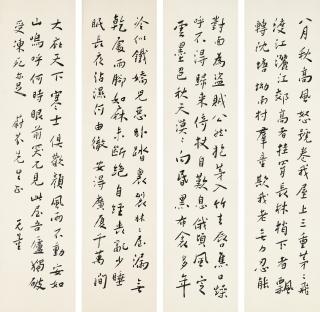 八月秋高風怒號卷我屋上三重茅〻飛
渡江灑江郊高者挂罥長林梢下者飄
轉沈塘坳南村群童欺我老無力忍能
對面為盜賊公然抱茅入竹去唇焦口燥
呼不得歸來倚杖自歎息俄頃風定
雲墨色秋天漠〻向昏黑布衾多年
冷似鐵嬌兒惡臥踏裏裂牀〻屋漏無
乾處雨腳如麻未斷絕自經喪亂少睡
眠長夜沾濕何由徹安得廣廈千萬間
大庇天下寒士俱歡顏風雨不動安如
山嗚呼何時眼前突兀見此屋吾廬獨破
受凍死亦足 先生正